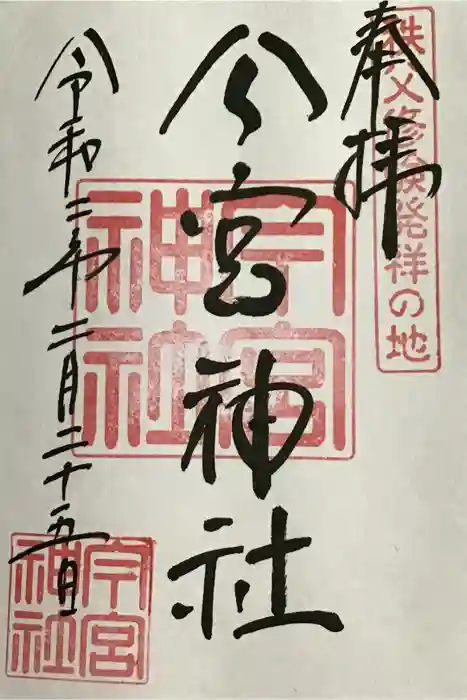 秩父修験発祥の地
奉拝
今宮神社
今宮神社
令和二年二月二十五日
今宮神社